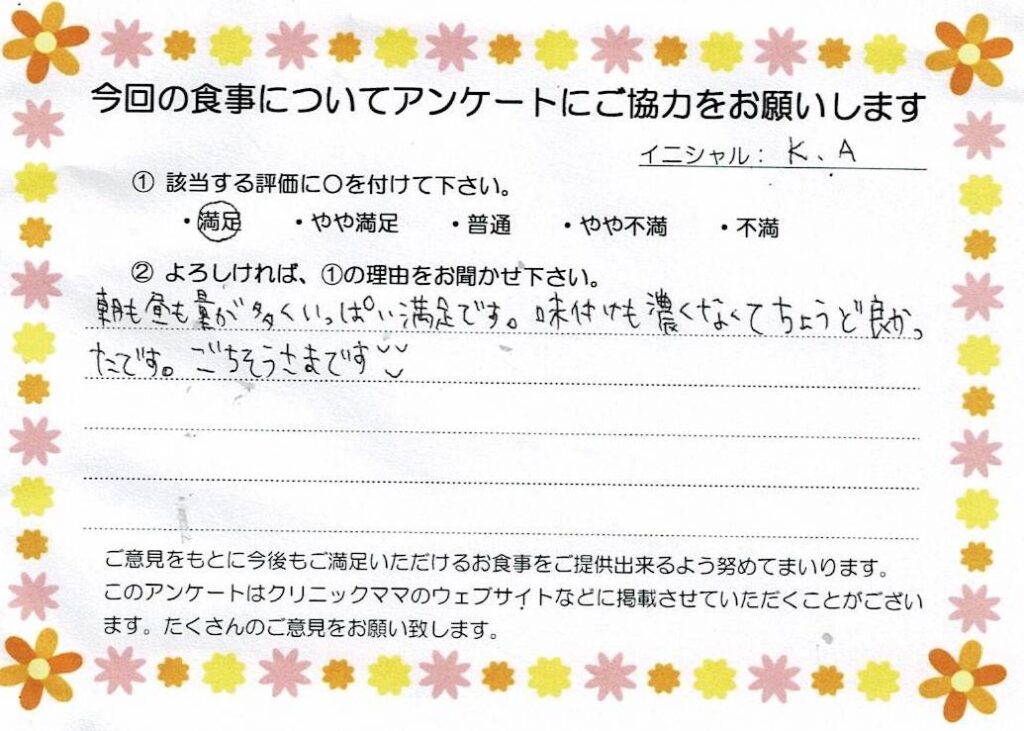 今回の食事についてアンケートにご協力をお願いします
イニシャル： K、A
① 該当する評価に〇を付けて下さい。
・満足 ・やや満足 ・普通 ・やや不満 ・不満
② よろしければ、①の理由をお聞かせ下さい。
朝も昼も量が多くいっぱい満足です。味付けも濃くなくてちょうど良かっ
たです。ごちそうさまです
ご意見をもとに今後もご満足いただけるお食事をご提供出来るよう努めてまいります。
このアンケートはクリニックママのウェブサイトなどに掲載させていただくことがござい
ます。たくさんのご意見をお願い致します。